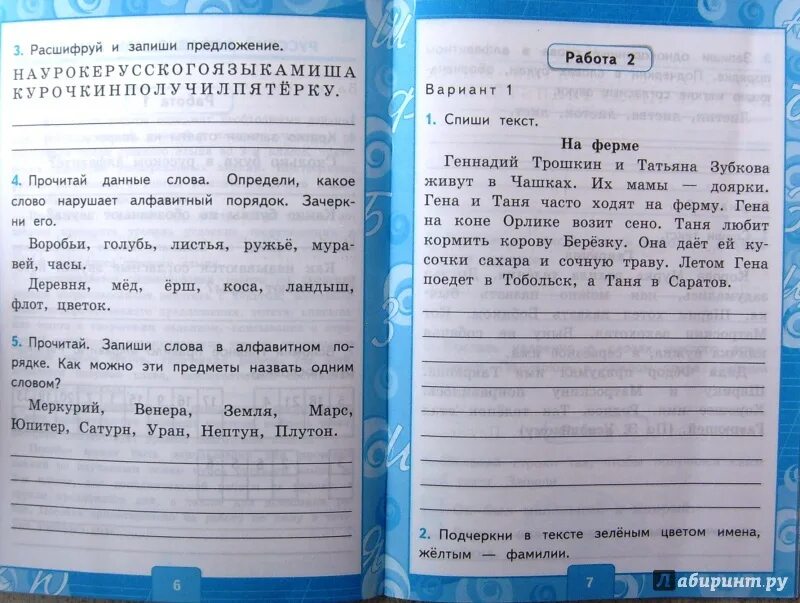 3. Расшифруй и запиши предложение.
НАУРОКЕРУССКОГОЯЗЫКАМИША
КУРОЧКИНПОЛУЧИЛПЯТЁРКУ.
4. Прочитай данные слова. Определи, какое
слово нарушает алфавитный порядок. Зачерк-
ни его.
Воробьи, голубь, листья, ружьё, мура-
вей, часы.
Деревня, мёд, ёрш, коса, ландыш,
флот, цветок.
5. Прочитай. Запиши слова в алфавитном по-
рядке. Как можно эти предметы назвать одним
словом?
Меркурий, Венера, Земля, Марс,
Юпитер, Сатурн, Уран, Нептун, Плутон.
6
Работа 2
Вариант 1
1. Спиши текст.
На ферме
Геннадий Трошкин и Татьяна Зубкова
живут в Чашках. Их мамы — доярки.
Гена и Таня часто ходят на ферму. Гена
на коне Орлике возит сено. Таня любит
кормить корову Берёзку. Она даёт ей ку-
сочки сахара и сочную траву. Летом Гена
поедет в Тобольск, а Таня в Саратов.
2. Подчеркни в тексте зелёным цветом имена,
жёлтым — фамилии.
7
Лабиринт.ру